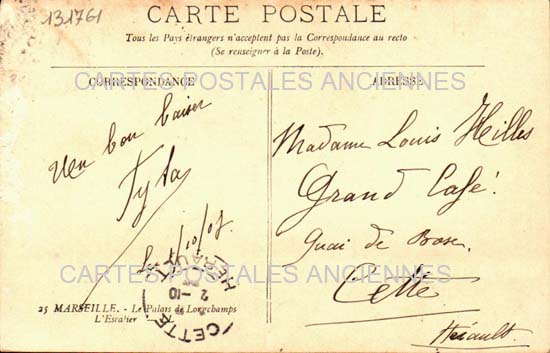 131761
CARTE POSTALE
Tous les Pays étrangers n'acceptent pas la Correspondance au recto
(Se renseigner à la Poste).
CORRESPONDANCE
ADRESSE
CARTES POSTALES ANCIENNES
Un bon baiser
Madame Louis Hilles
Grand Café
Quai de Bosc
Cette
Hérault
CARTES POSTALES ANCIENNES
CETTE
HERAULT
2-10
25 MARSEILLE. - Le Palais de Longchamps
L'Escalier